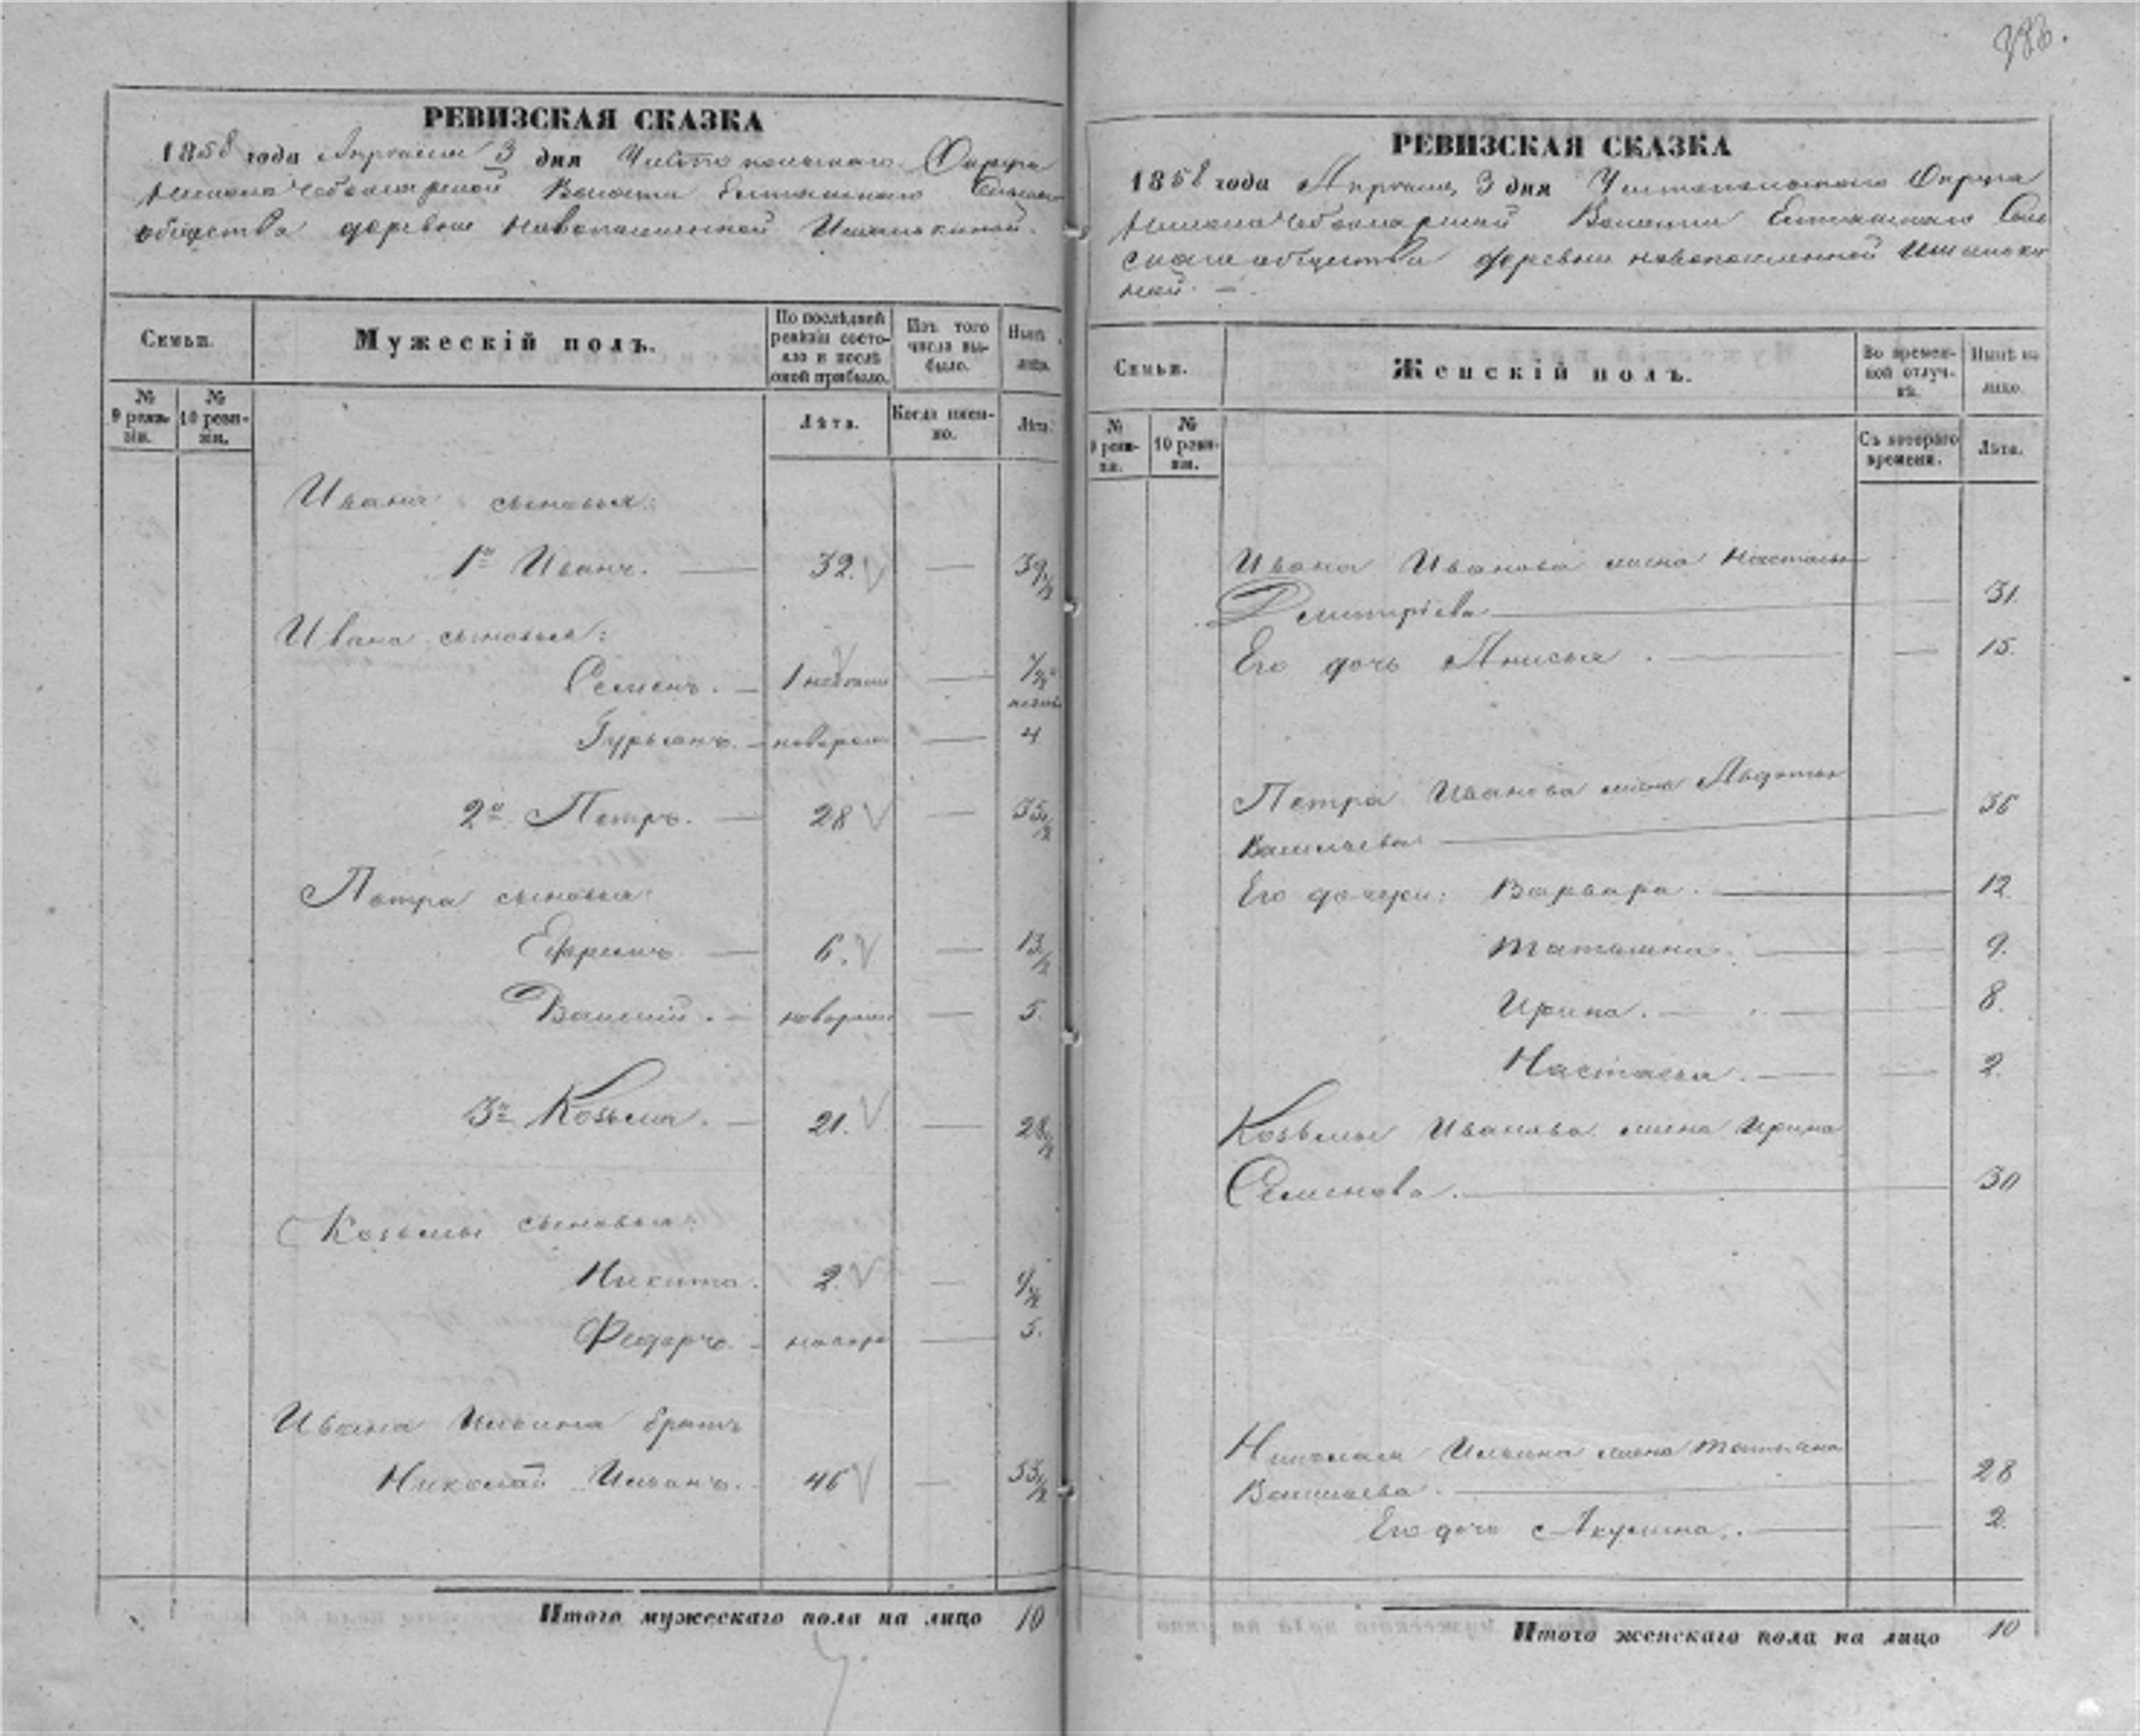 383.
РЕВИЗСКАЯ СКАЗКА
1858 года Апреля 3 дня Чистопольскаго Округа
Волости Сельскаго
общества деревни Новопоселенной Ишалькиной.
Семьи.
Мужескій полъ.
По послѣдней ревизіи состояло и послѣ оной прибыло.
Изъ того числа выбыло.
Нынѣ лицо.
№ 9 ревизіи.
№ 10 ревизіи.
Лѣта.
Когда именно.
Лѣта.
Ивана сыновья:
1й Иванъ. — 32. — 39 1/2
Ивана сыновья:
Семенъ. — 1 —
Гурьянъ. — новорож — 4
2й Петръ. — 28 — 35 1/2
Петра сыновья:
Ефремъ — 6. — 13 1/2
Василий. — новорож — 5.
3й Козьма. — 21. — 28 1/2
Козьмы сыновья:
Никита. 2. — 9 1/2
Федоръ. — новор — 5.
Ивана Ильина братъ
Николай Ильинъ. 46 — 53 1/2
Итого мужескаго пола на лицо 10
РЕВИЗСКАЯ СКАЗКА
1858 года Апреля 3 дня Чистопольскаго Округа
Волости Сель
скаго общества деревни новопоселенной Ишальки
ной. —.
Семьи.
Женскій полъ.
Во временной отлучкѣ.
Нынѣ на лицо.
№ 9 ревизіи.
№ 10 ревизіи.
Съ котораго времени.
Лѣта.
Ивана Иванова жена Настасья
Дмитріева — 31.
Его дочь Анисья. — — 15.
Петра Иванова жена Авдотья
Васильева — 36
Его дочери: Варвара. — 12
Татьяна. — — 9.
Ирина. — — 8.
Настасья. — — 2.
Козьмы Иванова жена Ирина
Семенова. — 30
Николая Ильина жена Татьяна
Васильева. — 28
Его дочь Акулина. — — 2.
Итого женскаго пола на лицо 10